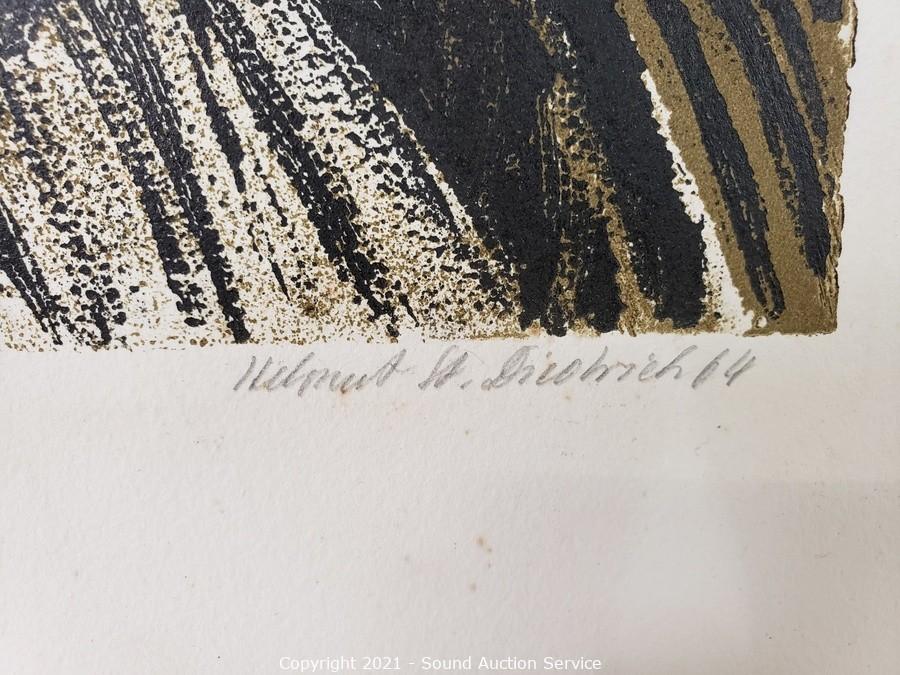 Helmut St. Diedrich 64
Copyright 2021 - Sound Auction Service